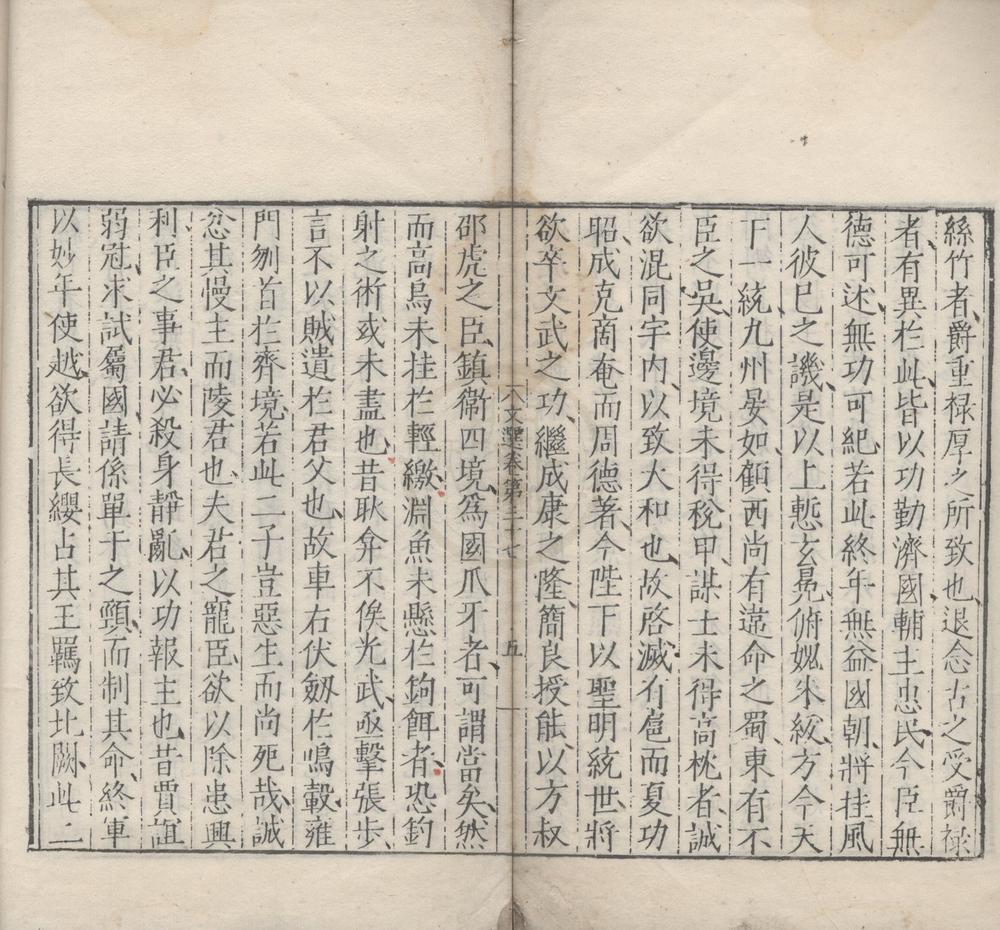 絲竹者、爵重祿厚之所致也、退念古之受爵祿
者、有異於此、皆以功勤濟國、輔主忠民、今臣無
德可述、無功可紀、若此終年、無益國朝、將挂風
人彼已之譏、是以上慙玄冕、俯媿朱紱、方今天
下一統、九州晏如、顧西尚有違命之蜀、東有不
臣之吳、使邊境未得稅甲、謀士未得高枕者、誠
欲混同宇內、以致太和也、故啓滅有扈而夏功
昭、成克商奄而周德著、今陛下以聖明統世、將
欲卒文武之功、繼成康之隆、簡良授能、以方叔
文選卷第三十七
五
邵虎之臣、鎮衛四境、爲國爪牙者、可謂當矣、然
而高鳥未挂於輕繳、淵魚未懸於鉤餌者、恐釣
射之術或未盡也、昔耿弇不俟光武、亟擊張步、
言不以賊遺於君父也、故車右伏劒於鳴轂、雍
門刎首於齊境、若此二子、豈惡生而尚死哉、誠
忿其慢主而陵君也、夫君之寵臣、欲以除患興
利、臣之事君、必殺身靜亂、以功報主也、昔賈誼
弱冠、求試屬國、請係單于之頸而制其命、終軍
以妙年使越、欲得長纓占其王、羈致北闕、此二